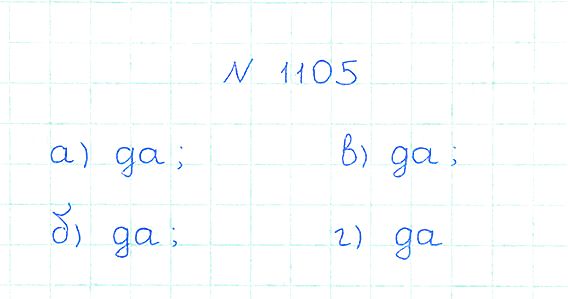 N 1105
а) да; в) да;
б) да; г) да